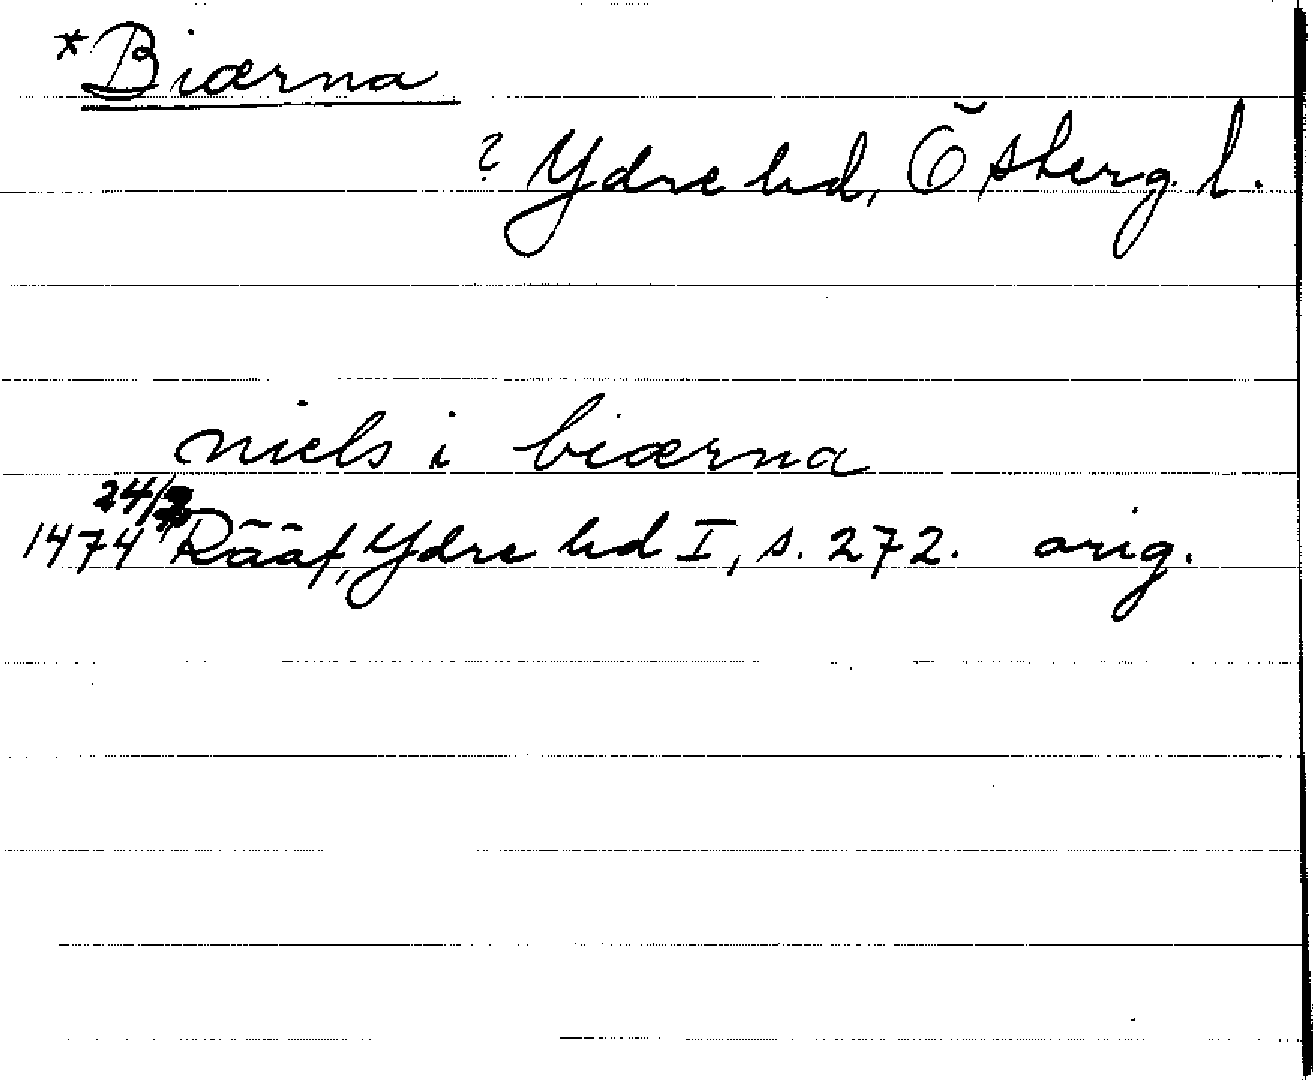 *Biærna
? Ydre hd, Östergl.
niels i biærna
24/
1474 Rääf, Ydre hd I, s. 272. orig.